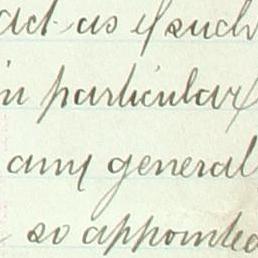 act as if such
in particular
any general
so appointed